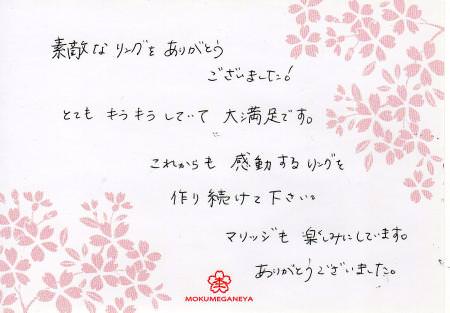 素敵なリングをありがとう
ございました！
とても キラキラしていて 大満足です。
これからも 感動するリングを
作り続けて下さい。
マリッジも 楽しみにしています。
ありがとうございました。
MOKUMEGANEYA